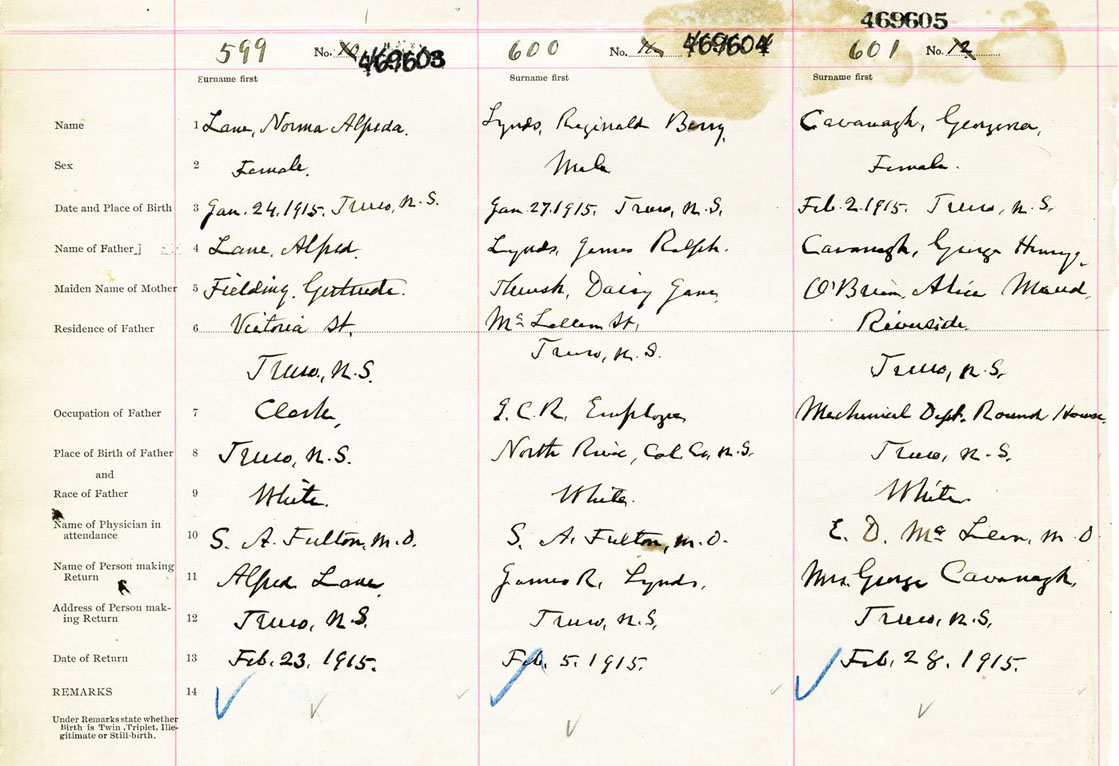 469605
599 No. 469603 600 No. 469604 601 No. 12
Surname first Surname first Surname first
Name 1 Lane, Norma Alfreda. Lynds, Reginald Berry, Cavanagh, Georgena,
Sex 2 Female. Male Female.
Date and Place of Birth 3 Jan. 24. 1915. Truro, N.S. Jan 27. 1915. Truro, N.S, Feb. 2. 1915. Truro, N.S,
Name of Father 4 Lane, Alfred. Lynds, James Ralph. Cavanagh, George Henry,
Maiden Name of Mother 5 Fielding, Gertrude. Daisy Jane, O'Brien, Alice Maud,
Residence of Father 6 Victoria St, Mc Lellan St, Riverside.
Truro, N.S. Truro, N.S. Truro, N.S,
Occupation of Father 7 Clerk, I.C.R. Employee Mechanical Dept. Round House.
Place of Birth of Father 8 Truro, N.S. North River, Col. Co, N.S. Truro, N.S.
and
Race of Father 9 White. White. White.
Name of Physician in
attendance 10 S. A. Fulton, M.D. S. A. Fulton, M.D. E. D. Mc Lean, M.D.
Name of Person making
Return 11 Alfred Lane, James R. Lynds, Mrs. George Cavanagh,
Address of Person mak-
ing Return 12 Truro, N.S. Truro, N.S, Truro, N.S,
Date of Return 13 Feb. 23. 1915. Feb. 5. 1915. Feb. 28. 1915.
REMARKS 14
Under Remarks state whether
Birth is Twin, Triplet, Ille-
gitimate or Still-birth.